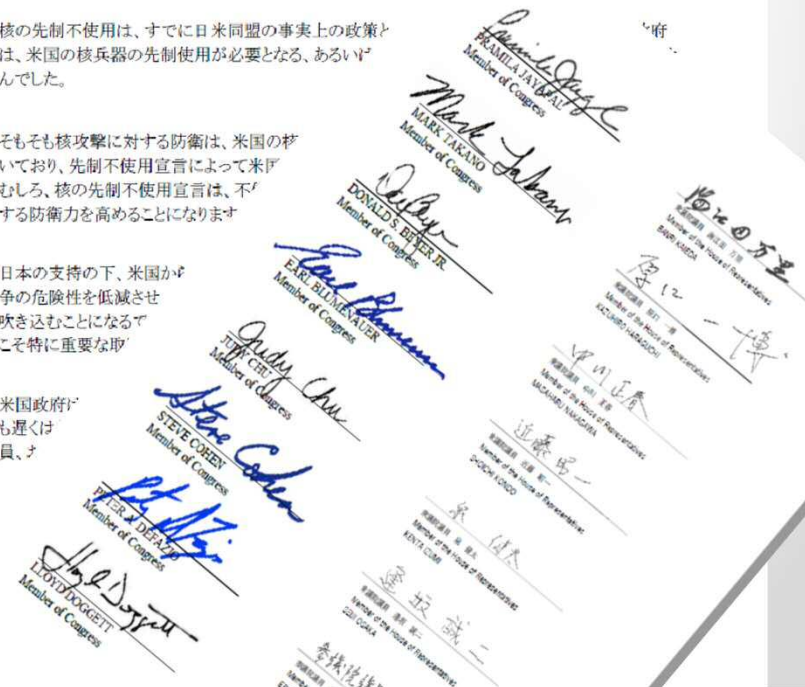 核の先制不使用は、すでに日米同盟の事実上の政策と
は、米国の核兵器の先制使用が必要となる、あるいは
んでした。
そもそも核攻撃に対する防衛は、米国の核
いており、先制不使用宣言によって米国
むしろ、核の先制不使用宣言は、不
する防衛力を高めることになります
日本の支持の下、米国か
争の危険性を低減させ
吹き込むことになるで
こそ特に重要な取
米国政府に
も遅くは
員、
府
PRAMILA JAYAPAL
Member of Congress
Mark Takano
MARK TAKANO
Member of Congress
DONALD S. BEYER JR.
Member of Congress
Earl Blumenauer
EARL BLUMENAUER
Member of Congress
Judy Chu
JUDY CHU
Member of Congress
Steve Cohen
STEVE COHEN
Member of Congress
PETER A. DEFAZIO
Member of Congress
Lloyd Doggett
LLOYD DOGGETT
Member of Congress
海江田万里
衆議院議員 海江田 万里
Member of the House of Representatives
BANRI KAIEDA
原口一博
衆議院議員 原口 一博
Member of the House of Representatives
KAZUHIRO HARAGUCHI
中川正春
衆議院議員 中川 正春
Member of the House of Representatives
MASAHARU NAKAGAWA
近藤昭一
衆議院議員 近藤 昭一
Member of the House of Representatives
SHOICHI KONDO
泉 健太
衆議院議員 泉 健太
Member of the House of Representatives
KENTA IZUMI
逢坂誠二
衆議院議員 逢坂 誠二
Member of the House of Representatives
SEIJI OSAKA
参議院議